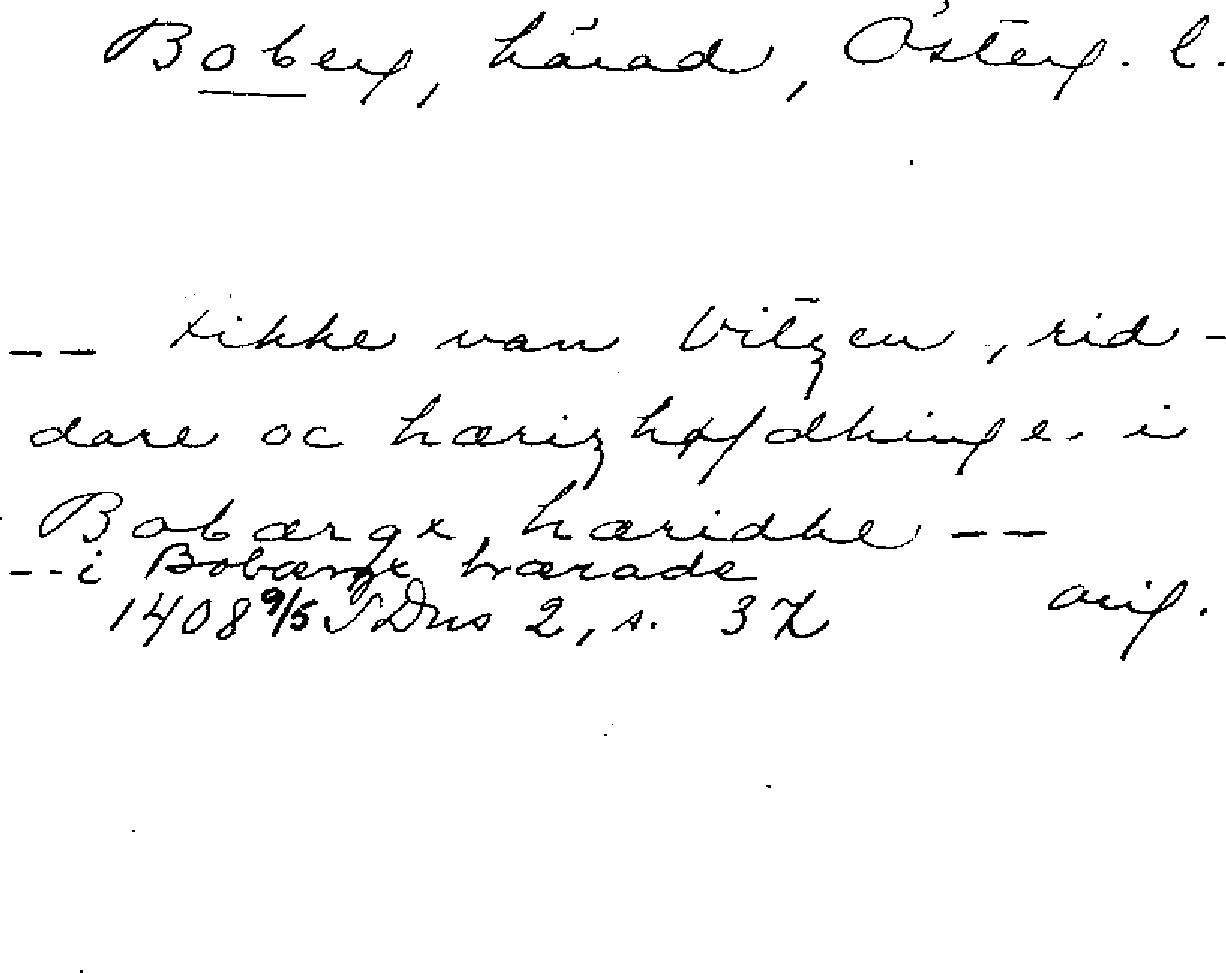 Boberg, härad, Österg. l.
-- Fikke van Vitzen, rid-
dare oc hærizhøfdhinge i
Bobærgx hæridhe --
-- i Bobærgx hærade
1408 9/5 SDns 2, s. 37 orig.